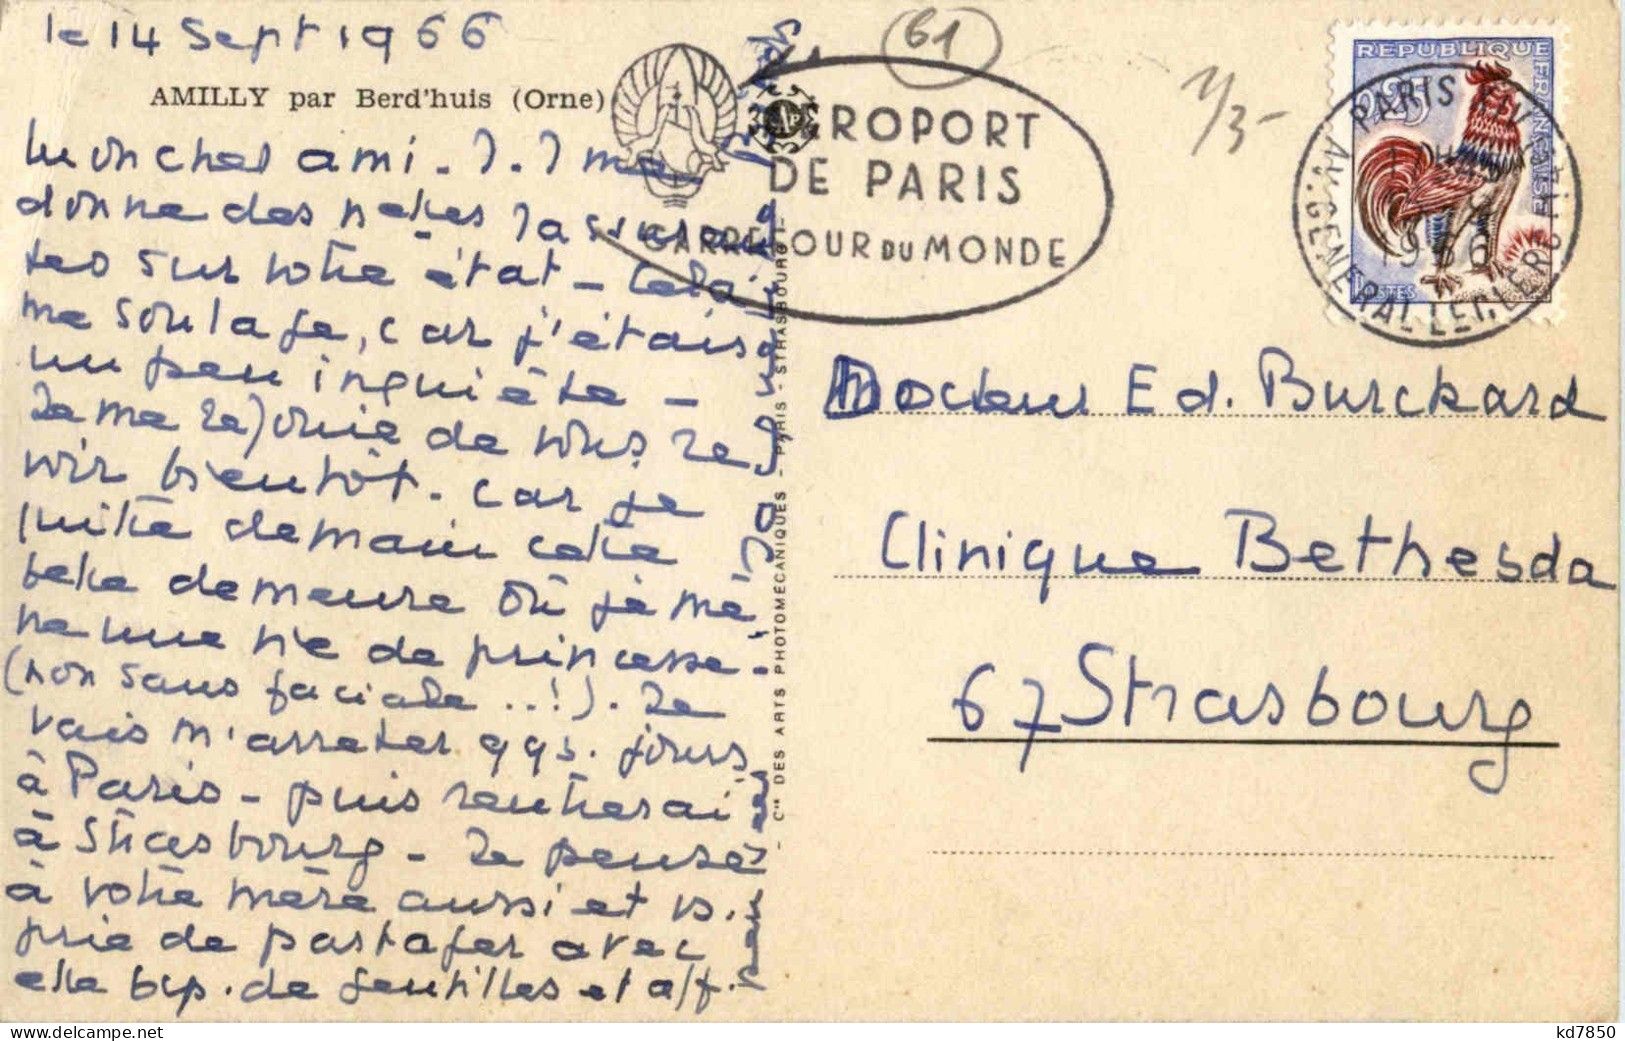 le 14 Sept 1966
AMILLY par Berd'huis (Orne)
Mon cher ami - J.J me
donne des nelles rassuran
tes sur votre état - Cela
me soulage, car j'étais
un peu inquiète -
Je me réjouie de vous re
voir bientôt - car je
quitte demain cette
belle demeure où j'ai mé
né une vie de princesse -
(non sans faciale ..!). Je
vais m'arreter qqs. jours
à Paris - puis rentrerai
à Strasbourg - Je pense
à votre mère aussi et vs.
prie de partager avec
elle bcp. de gentilles et aff.
pensées
Cie DES ARTS PHOTOMÉCANIQUES - PARIS - STRASBOURG
61
1/3-
AEROPORT
DE PARIS
CARREFOUR DU MONDE
REPUBLIQUE FRANÇAISE
0,25
POSTES
PARIS XIV
AV. GENERAL LECLERC
1966
Docteur Ed. Burckard
Clinique Bethesda
67 Strasbourg
kd7850